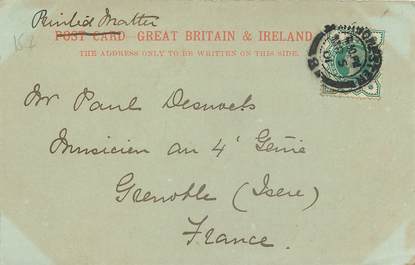 Printed Matter
15 f
POST CARD GREAT BRITAIN & IRELAND
THE ADDRESS ONLY TO BE WRITTEN ON THIS SIDE.
MANCHESTER
Mr Paul Desuvets
Musicien au 4e Génie
Grenoble (Isere)
France.